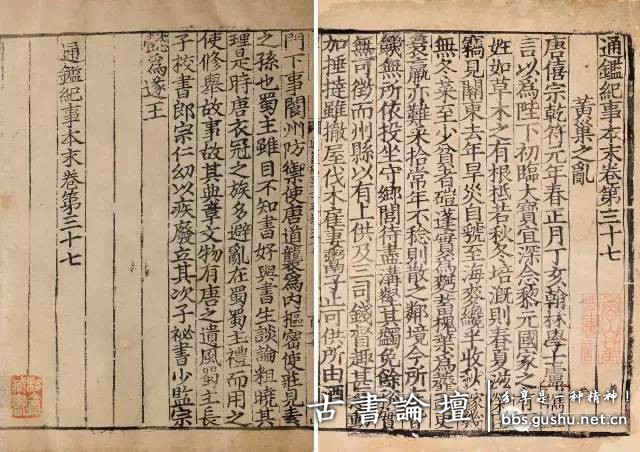 通鑑紀事本末卷第三十七
黃巢之亂
唐僖宗乾符元年春正月丁亥翰林學士盧攜
言以為陛下初臨大寶宜深念黎元國家之
姓如草木之有根柢若秋冬培溉則春夏滋榮
竊見關東去年旱災自虢至海麥纔半收秋稼幾
無冬菜至少貧者磑蓬實為麪蓄槐葉為齏或更
衰羸亦難采拾常年不稔則散之鄰境今所在
饑無所依投坐守鄉閭待盡溝壑其蠲免餘稅實
無可徵而州縣以有上供及三司錢督趣甚
加捶撻雖撤屋伐木雇妻鬻子止可供所由酒
門下事閬州防禦使唐道襲為內樞密使莊見素
之孫也蜀主雖目不知書好與書生談論粗曉其
理是時唐衣冠之族多避亂在蜀蜀主禮而用之
使修舉故事故其典章文物有唐之遺風蜀主長
子校書郎宗仁幼以疾廢立其次子祕書少監宗
懿為遂王
通鑑紀事本末卷第三十七
古書論壇
分享是一种精神!
bbs.gushu.net.cn